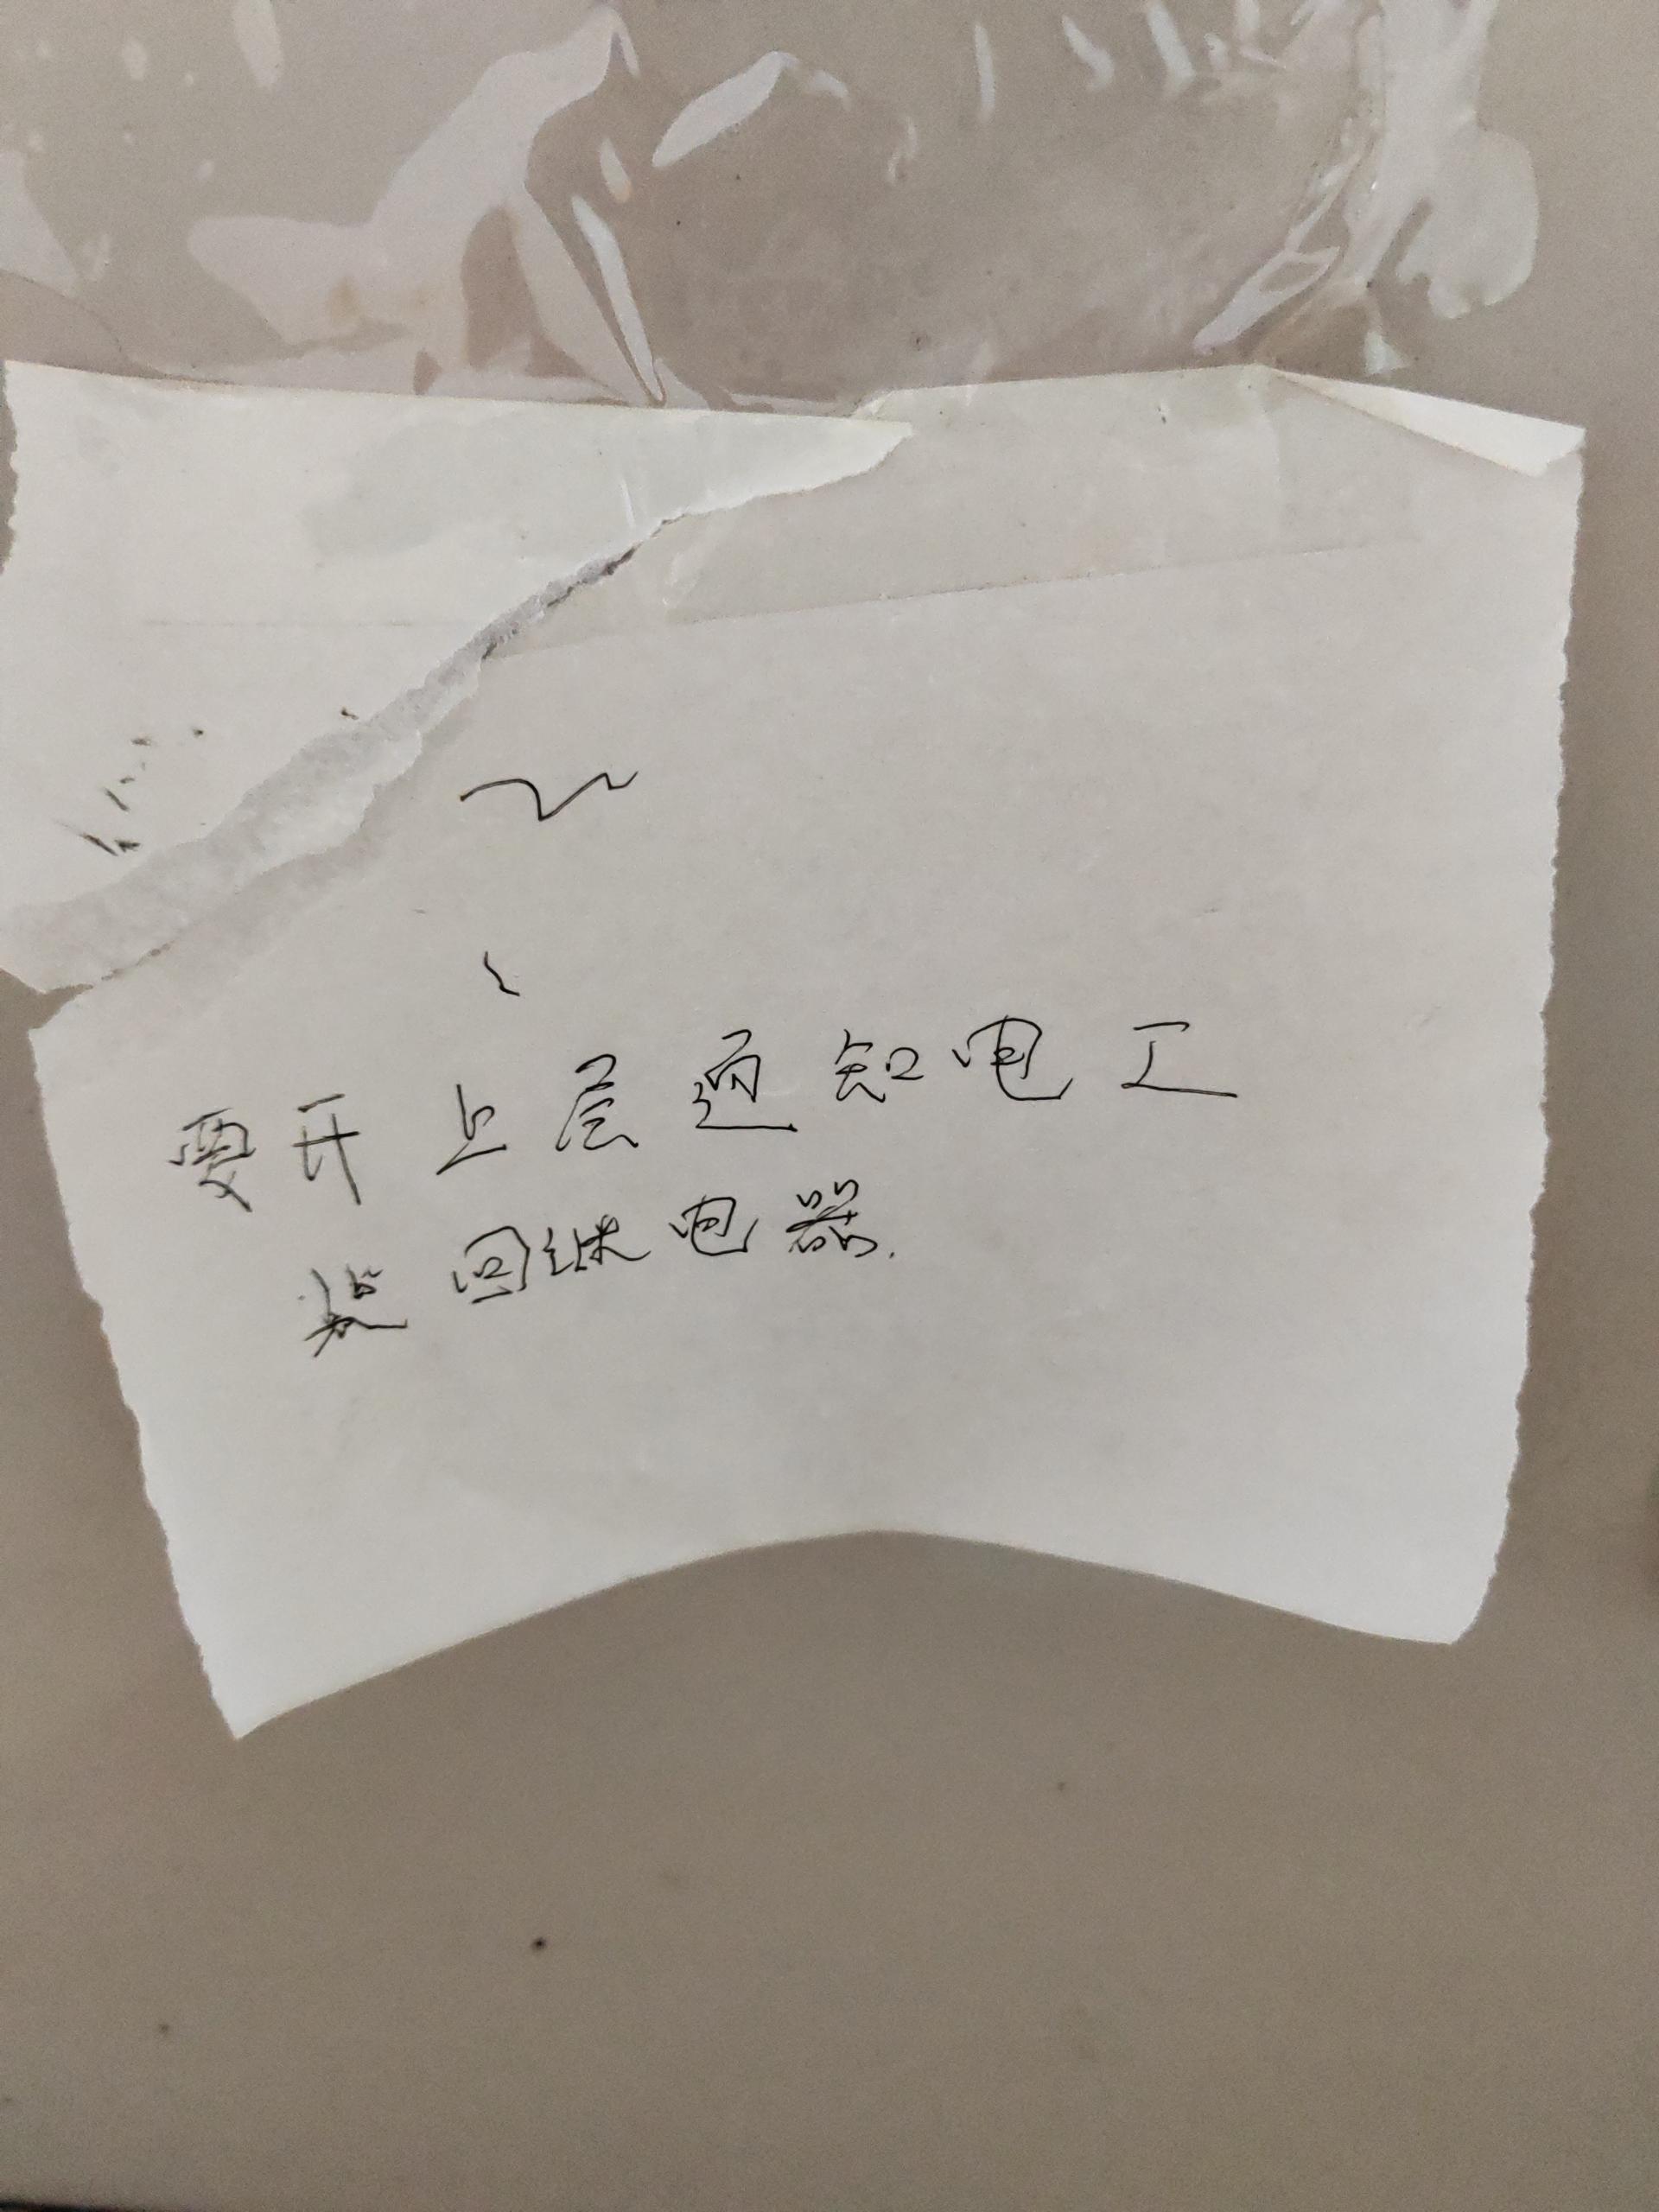 要开上层通知电工
装回继电器.